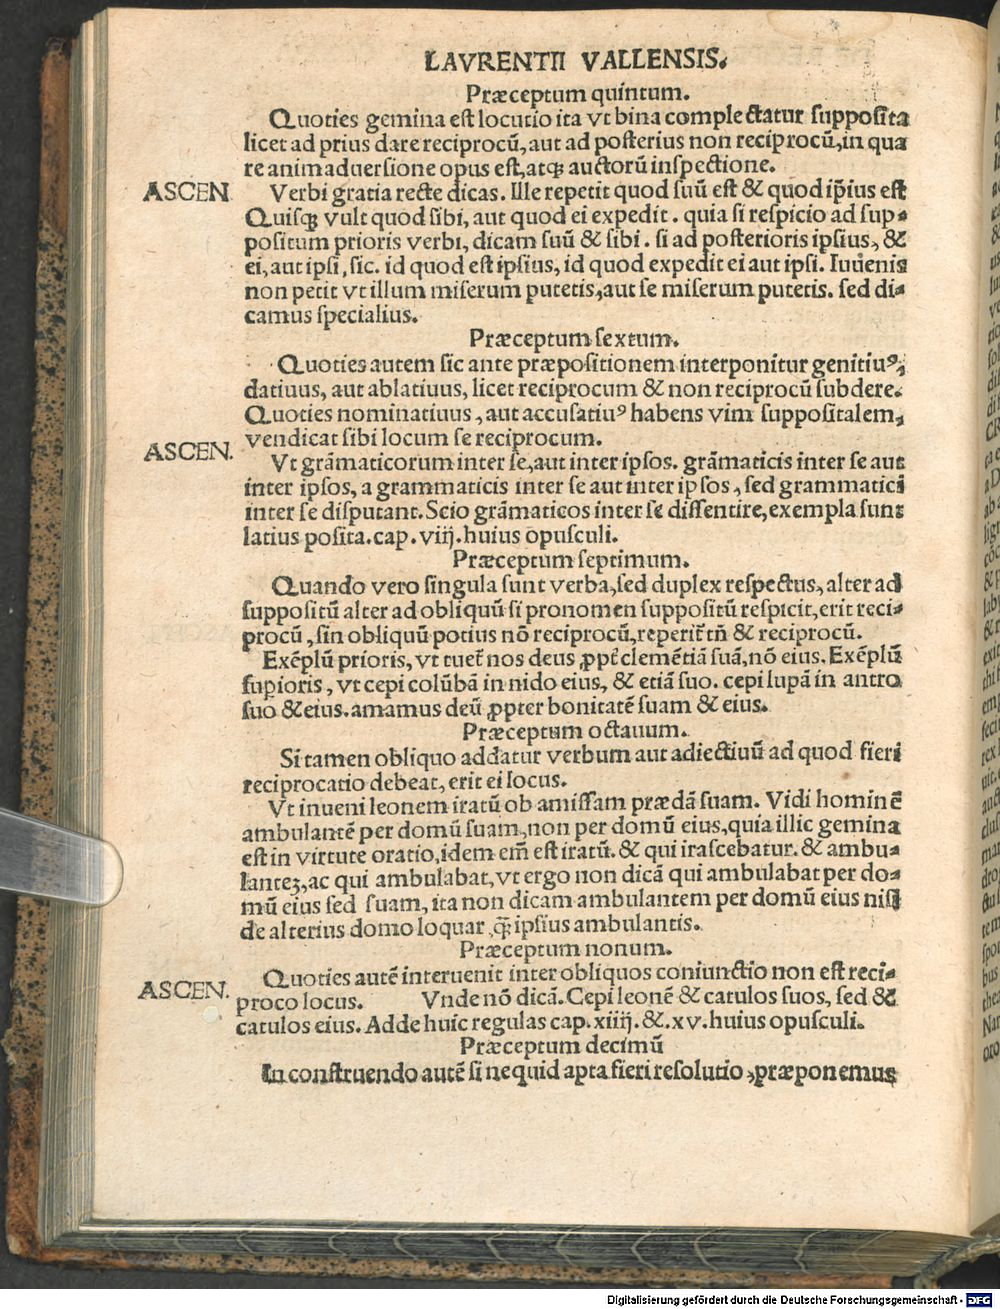 LAVRENTII VALLENSIS.
Præceptum quintum.
Quoties gemina est locutio ita vt bina complectatur supposita
licet ad prius dare reciprocū, aut ad posterius non reciprocū, in qua
re animaduersione opus est, atqꝫ auctorū inspectione.
ASCEN. Verbi gratia recte dicas. Ille repetit quod suū est & quod ip̄ius est
Quisqꝫ vult quod sibi, aut quod ei expedit. quia si respicio ad sup-
positum prioris verbi, dicam suū & sibi. si ad posterioris ipsius, &
ei, aut ipsi, sic. id quod est ipsius, id quod expedit ei aut ipsi. Iuuenis
non petit vt illum miserum putetis, aut se miserum putetis. sed di-
camus specialius.
Præceptum sextum.
Quoties autem sic ante præpositionem interponitur genitiuꝰ,
datiuus, aut ablatiuus, licet reciprocum & non reciprocū subdere.
Quoties nominatiuus, aut accusatiuꝰ habens vim suppositalem,
vendicat sibi locum se reciprocum.
ASCEN. Vt grāmaticorum inter se, aut inter ipsos. grāmaticis inter se aut
inter ipsos, a grammaticis inter se aut inter ipsos, sed grammatici
inter se disputant. Scio grāmaticos inter se dissentire, exempla sunt
latius posita. cap. viij. huius opusculi.
Præceptum septimum.
Quando vero singula sunt verba, sed duplex respectus, alter ad
suppositū alter ad obliquū si pronomen suppositū respicit, erit reci-
procū, sin obliquū potius nō reciprocū, reperit̄ tñ & reciprocū.
Exēplū prioris, vt tuet̄ nos deus ꝓpt̄ clemētiā suā, nō eius. Exēplū
supioris, vt cepi colūbā in nido eius, & etiā suo. cepi lupā in antro
suo & eius. amamus deū ꝓpter bonitatē suam & eius.
Præceptum octauum.
Si tamen obliquo addatur verbum aut adiectiuū ad quod fieri
reciprocatio debeat, erit ei locus.
Vt inueni leonem iratū ob amissam prædā suam. Vidi hominē
ambulantē per domū suam, non per domū eius, quia illic gemina
est in virtute oratio, idem em̄ est iratū. & qui irascebatur. & ambu-
lanteꝫ, ac qui ambulabat, vt ergo non dicā qui ambulabat per do-
mū eius sed suam, ita non dicam ambulantem per domū eius nisi
de alterius domo loquar q̄ꝫ ipsius ambulantis.
Præceptum nonum.
Quoties autē interuenit inter obliquos coniunctio non est reci-
ASCEN. proco locus. Vnde nō dicā. Cepi leonē & catulos suos, sed &
catulos eius. Adde huic regulas cap. xiiij. &. xv. huius opusculi.
Præceptum decimū
In construendo autē si nequid apta fieri resolutio, præponemus
Digitalisierung gefördert durch die Deutsche Forschungsgemeinschaft - DFG